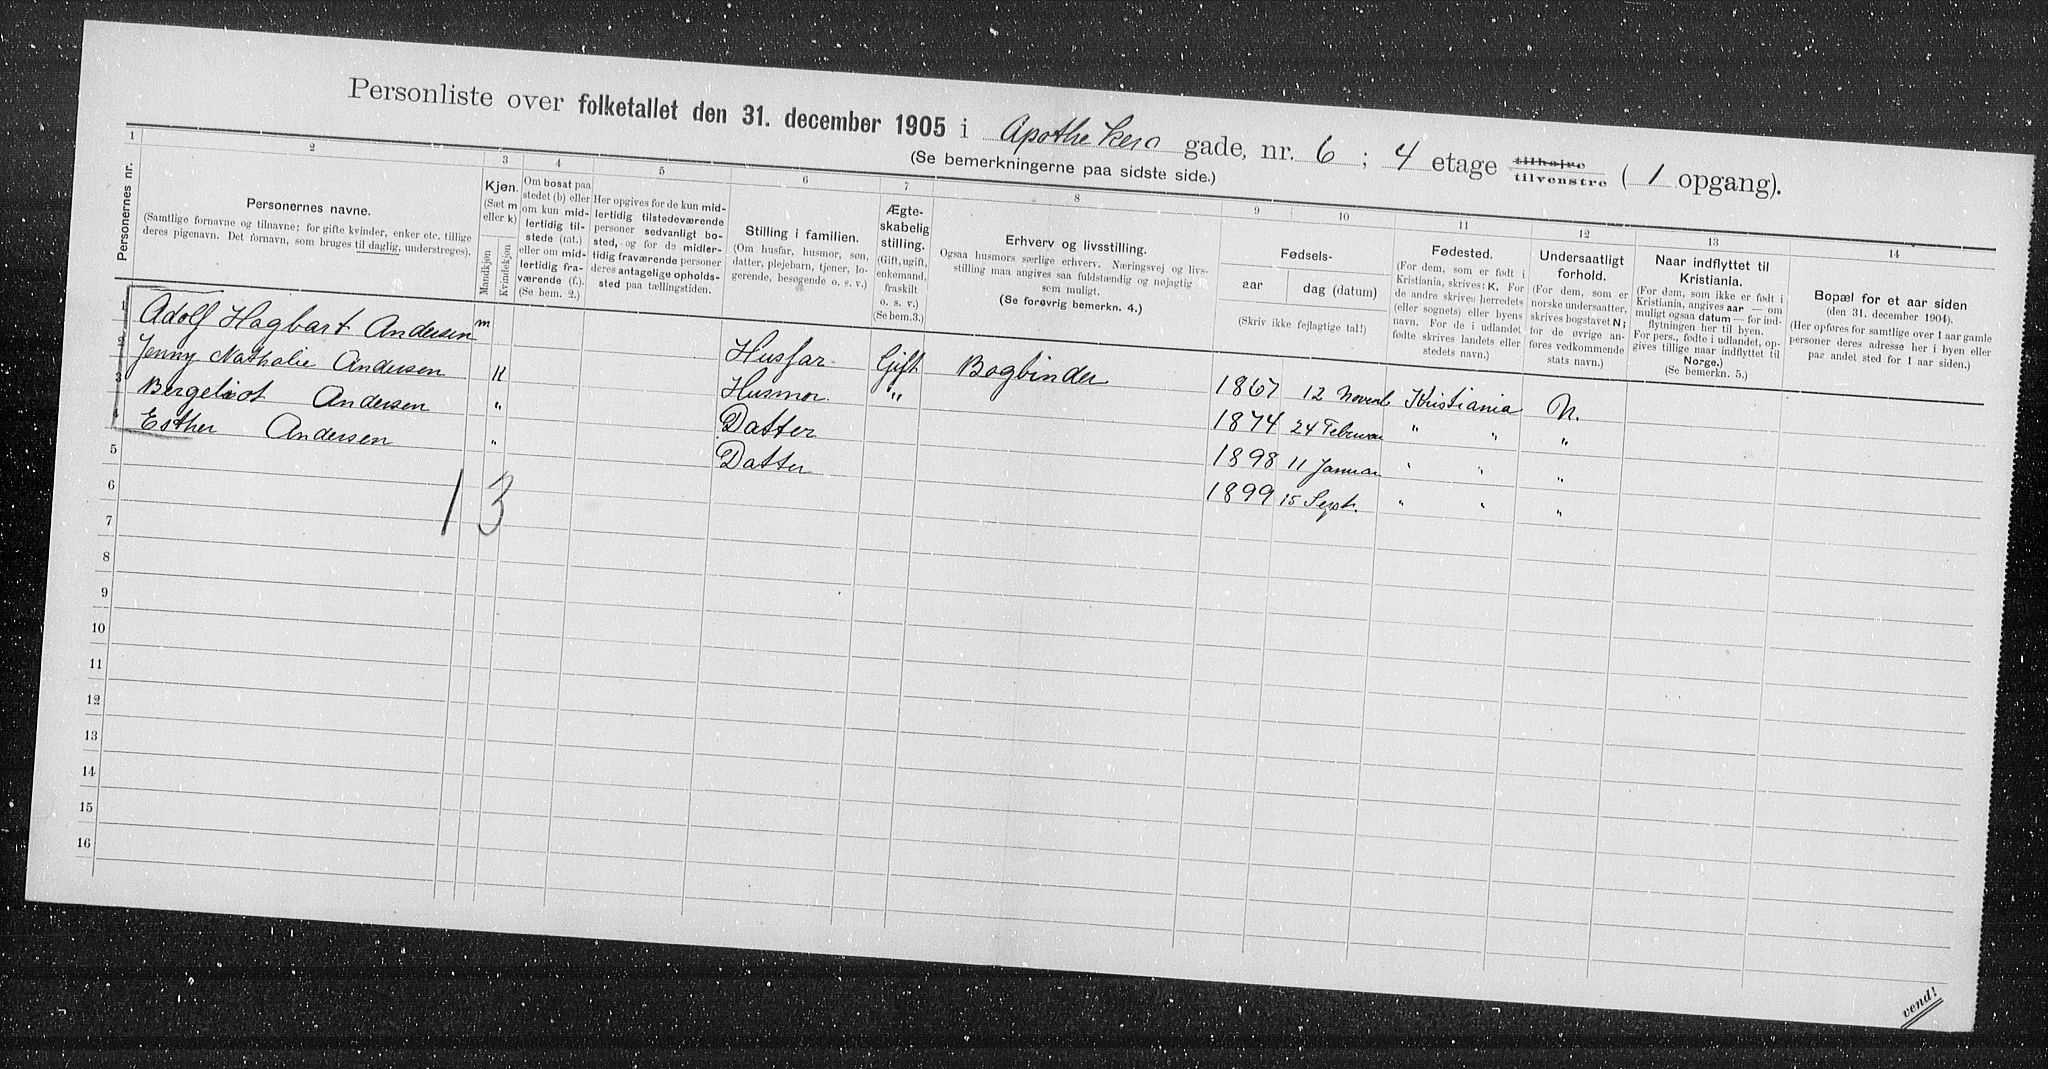 Personliste over folketallet den 31. december 1905 i Apothekers gade, nr. 6 ; 4 etage tilhøire tilvenstre ( 1 opgang).
(Se bemerkningerne paa sidste side.)
1 2 3 4 5 6 7 8 9 10 11 12 13 14
Personernes nr.
Personernes navne.
(Samtlige fornavne og tilnavne; for gifte kvinder, enker etc. tillige
deres pigenavn. Det fornavn, som bruges til daglig, understreges).
Kjøn.
(Sæt m
eller k)
Mandkjøn
Kvindekjøn
Om bosat paa
stedet (b) eller
om kun mid-
lertidig til-
stede (mt.)
eller om mid-
lertidig fra-
værende (f.).
(Se bem. 2.)
Her opgives for de kun mid-
lertidig tilstedeværende
personer sedvanligt bo-
sted, og for de midler-
tidig fraværende personer
deres antagelige opholds-
sted paa tællingstiden.
Stilling i familien.
(Om husfar, husmor, søn,
datter, plejebarn, tjener, lo-
gerende, besøgende o. s. v.)
Ægte-
skabelig
stilling.
(Gift, ugift,
enkemand,
fraskilt
o. s. v.)
(Se bem.3.)
Erhverv og livsstilling.
Ogsaa husmors særlige erhverv. Næringsvej og livs-
stilling maa angives saa fuldstændig og nøjagtig
som muligt.
(Se forøvrig bemerkn. 4.)
Fødsels-
aar
dag (datum)
(Skriv ikke fejlagtige tal!)
Fødested.
(For dem, som er født i
Kristiania, skrives: K. For
de andre skrives herredets
(eller sognets) eller byens
navn. For de i udlandet
fødte skrives landets eller
stedets navn.)
Undersaatligt
forhold.
(For dem, som er
norske undersaatter,
skrives bogstavet N;
for de øvrige an-
føres vedkommende
stats navn.)
Naar indflyttet til
Kristiania.
(For dem, som ikke er født i
Kristiania, angives aar — om
muligt ogsaa datum — for ind-
flytningen her til byen.
For pers., fødte i udlandet, op-
gives tillige naar indflyttet til
Norge.)
(Se bemerkn. 5.)
Bopæl for et aar siden
(den 31. december 1904).
(Her opføres for samtlige over 1 aar gamle
personer deres adresse her i byen eller
paa andet sted for 1 aar siden.)
1 Adolf Hagbart Andersen m Husfar Gift Bogbinder 1867 12 Novemb Kristiania N.
2 Jenny Nathalie Andersen K Husmor " 1874 24 Februar " " "
3 Bergeliot Andersen " Datter 1898 11 Januar " " "
4 Esther Andersen " Datter 1899 15 Sept. " " "
5
6
1 3
7
8
9
10
11
12
13
14
15
16
vend!